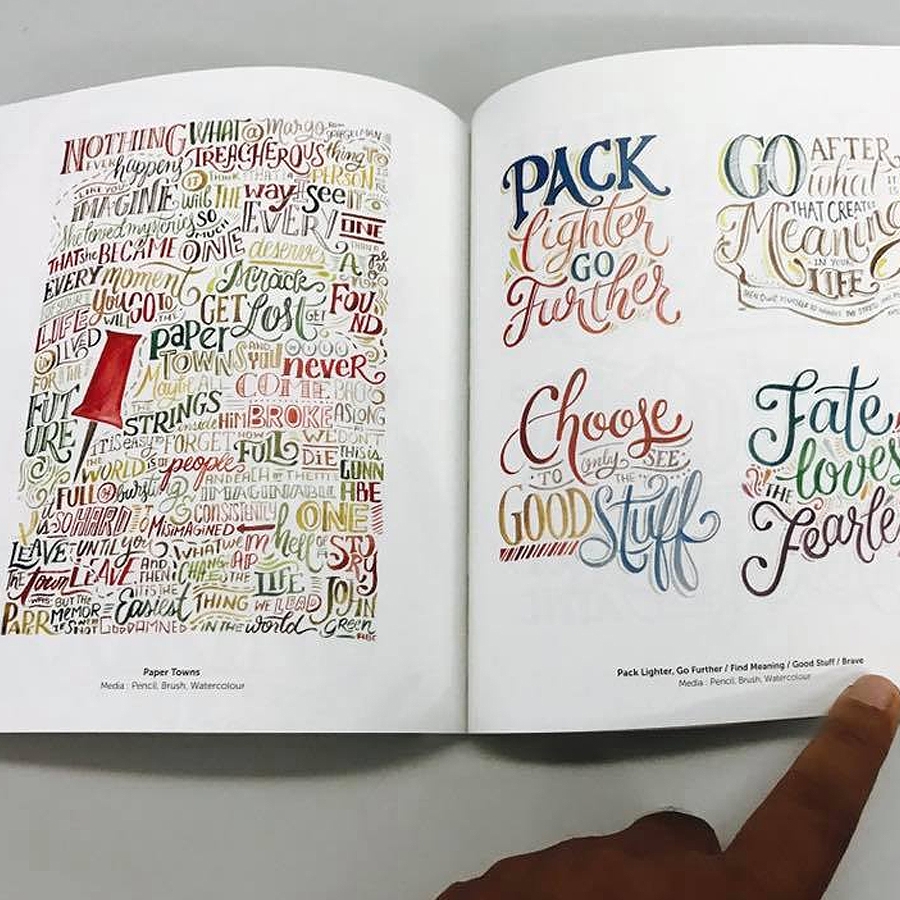 NOTHING WHAT @ Margo
EVER happens TREACHEROUS thing TO
LIKE YOU IT THINK THAT A PERSON
IMAGINE will THE way I See IT
She loved mysteries SO MUCH EVERY ONE
THAT she BECAME ONE deserves A
EVERY moment Miracle
OF YOUR YOU GO TO GET Lost GET FOU
LIFE WILL THE ND.
IS LIVED Paper AND
FOR THE TOWNS YOU never
Maybe ALL COME BACK
FUT THE STRINGS inside HIM BROKE AS LONG
URE IT IS easy TO FORGET HOW FULL WE DON'T
THE WORLD IS OF people DIE THIS IS
FULL & bursting AND EACH OF THEM GUNN
IMAGINABLE HBE
it is SO HARD TO MISIMAGINED CONSISTENTLY ONE
LEAVE UNTIL YOU WHAT hell OF STO
THE Town LEAVE AND THEN CHANGE THE LIFE RY
WAS BUT THE IT IS THE
PAPER MEMOR Easiest THING WE LEAD JOHN
GODDAMNED IN THE world Green
Paper Towns
Media : Pencil, Brush, Watercolour
PACK
lighter
GO
Further
GO AFTER
what IT IS
THAT CREATES
Meaning
IN YOUR
LIFE
Choose
TO only SEE
THE
GOOD Stuff
Fate
loves
THE
Fearle
Pack Lighter, Go Further / Find Meaning / Good Stuff / Brave
Media : Pencil, Brush, Watercolour